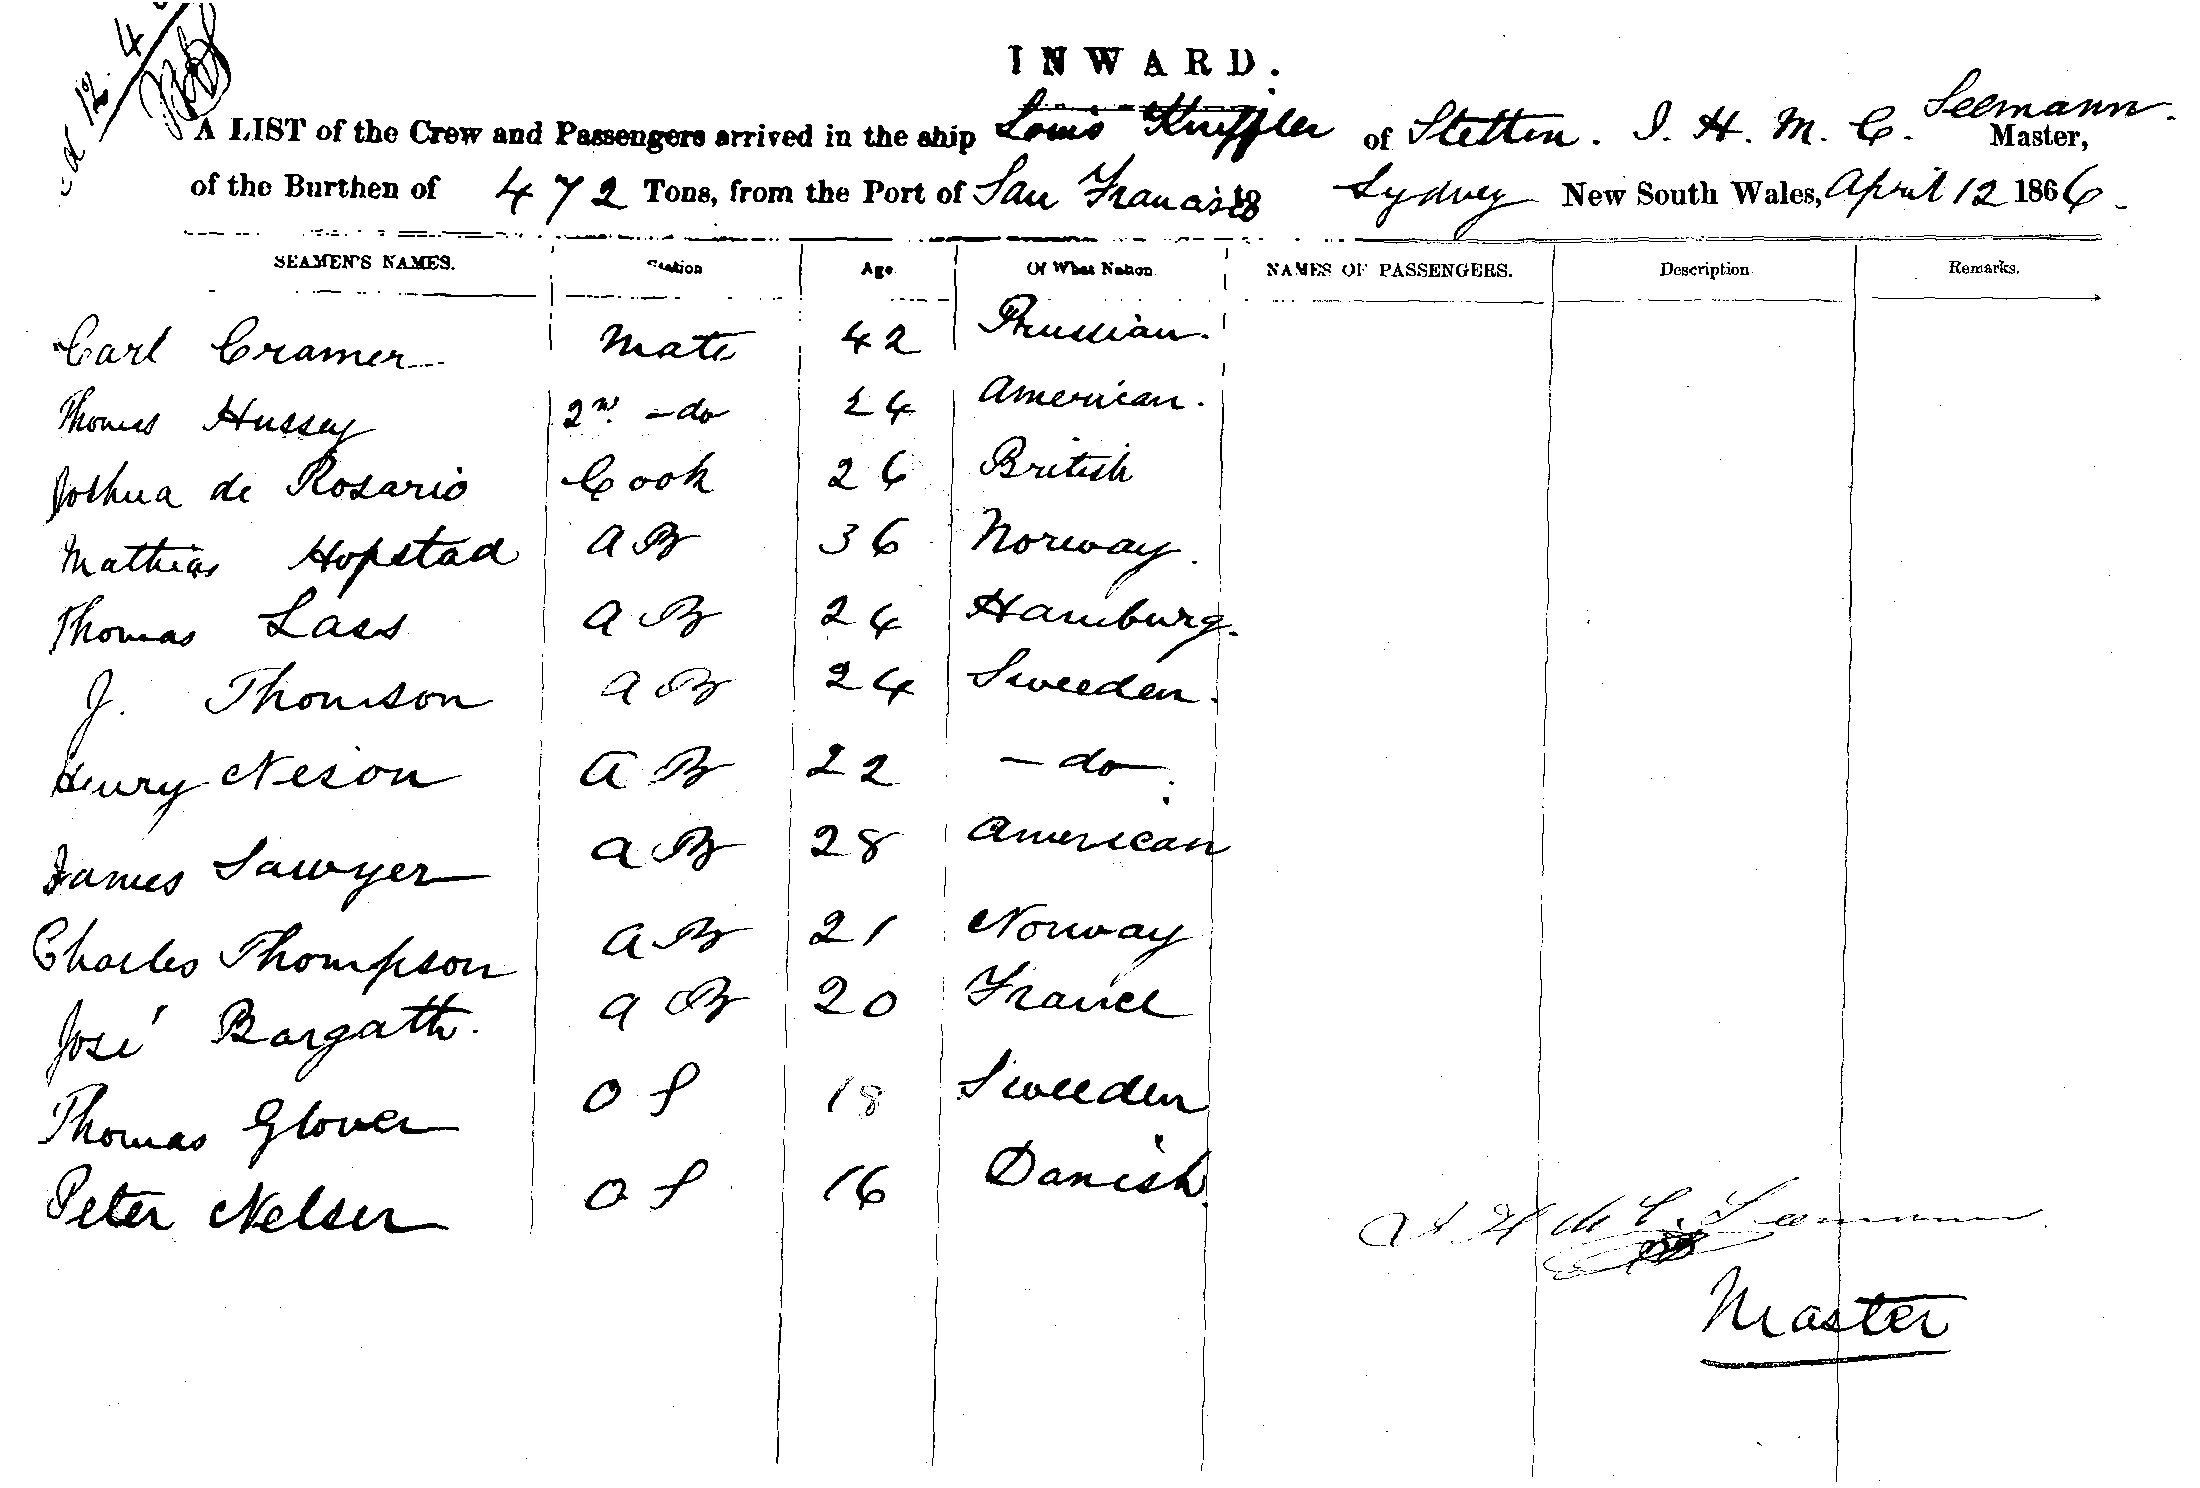 12. 4
INWARD.
A LIST of the Crew and Passengers arrived in the ship Louis Kniffler of Stettin. I. H. M. C. Seemann. Master,
of the Burthen of 472 Tons, from the Port of San Francisco to Sydney New South Wales, April 12 1866.
SEAMEN'S NAMES. Station Age Of What Nation NAMES OF PASSENGERS. Description Remarks.
Carl Cramer Mate 42 Prussian.
Thomas Hussey 2nd - do 24 American.
Joshua de Rosario Cook 26 British
Mathias Hopstad A B 36 Norway.
Thomas Lass A B 24 Hamburg.
J. Thomson A B 24 Sweeden.
Henry Neson A B 22 - do -
James Sawyer A B 28 American
Charles Thompson A B 21 Norway
José Bargath. A B 20 France
Thomas Glover O S 18 Sweeden
Peter Nelser O S 16 Danish
Seemann
Master